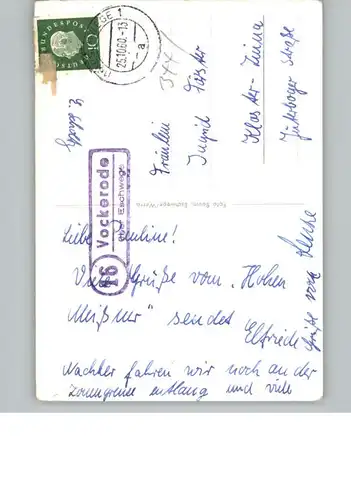 DEUTSCHE BUNDESPOST
10
ESCHWEGE 1
25.10.60.-13
a
344/
z. Zt.
Fräulein
Ingrid
Kloster-Zinna
Jüterboger Straße
Foto
Eschwege/Werra
(16) Vockerode
über Eschwege
Liebe
Viele Grüße vom "Hohen
Meißner" sendet
Elfriede
Grüße von
Nachher fahren wir noch an der
Zonengrenze entlang und viele